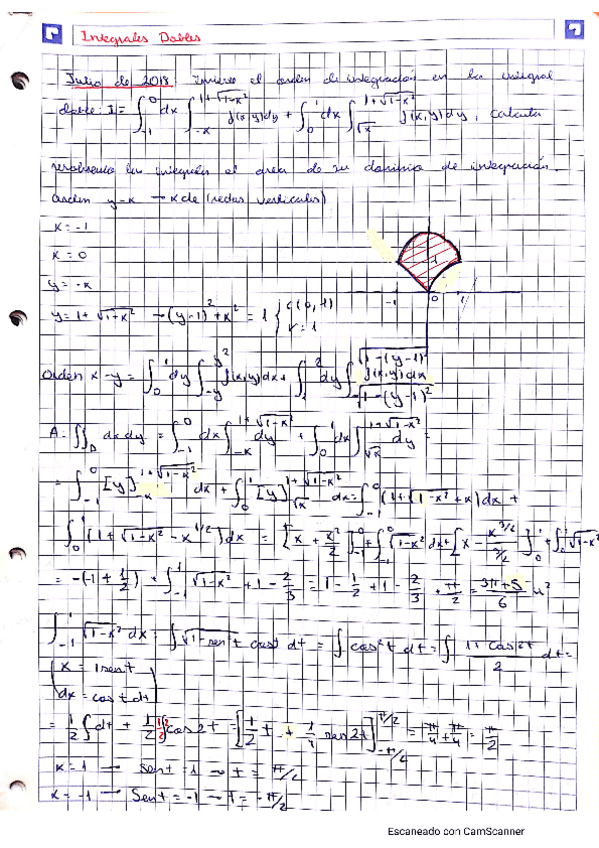 Integrales Dobles
Julio de 2018 Invierte el orden de integración en la integral
doble: I = ∫_{-1}^{0} dx ∫_{-x}^{1+√(1-x²)} f(x,y)dy + ∫_{0}^{1} dx ∫_{√x}^{1+√(1-x²)} f(x,y)dy, calcula
resolviendo la integral el area de su dominio de integración.
Orden y-x → x de (rectas verticales)
x = -1
x = 0
y = -x
y = 1 + √(1+x²) → (y-1)² + x² = 1 { C(0,1) r = 1
-1 0 1
Orden x-y = ∫_{0}^{1} dy ∫_{-y}^{y²} f(x,y)dx + ∫_{1}^{2} dy ∫_{-√(1-(y-1)²)}^{√(1-(y-1)²)} f(x,y) dx
A = ∬_D dxdy = ∫_{-1}^{0} dx ∫_{-x}^{1+√(1-x²)} dy + ∫_{0}^{1} dx ∫_{√x}^{1+√(1-x²)} dy =
= ∫_{-1}^{0} [y]_{-x}^{1+√(1-x²)} dx + ∫_{0}^{1} [y]_{√x}^{1+√(1-x²)} dx = ∫_{-1}^{0} (1+√(1-x²)+x)dx +
∫_{0}^{1} (1+√(1-x²) - x^{1/2})dx = [x + x²/2]_{-1}^{0} + ∫_{-1}^{0} √(1-x²) dx + [x - x^{3/2}/(3/2)]_{0}^{1} + ∫_{0}^{1} √(1-x²)
= -(-1 + 1/2) + ∫_{-1}^{1} √(1-x²) + 1 - 2/3 = 1 - 1/2 + 1 - 2/3 + π/2 = (3π+5)/6 u²
∫_{-1}^{1} √(1-x²) dx = ∫ √(1-sen²t) cost dt = ∫ cos²t dt = ∫ (1+cos2t)/2 dt =
x = 1sent
dx = cost dt
= 1/2 ∫ dt + 1/2 ∫ cos2t = [1/2 t + 1/4 sen2t]_{-π/2}^{π/2} = π/4 + π/4 = π/2
x = 1 → sent = 1 → t = π/2
x = -1 → Sent = -1 → t = -π/2
Escaneado con CamScanner